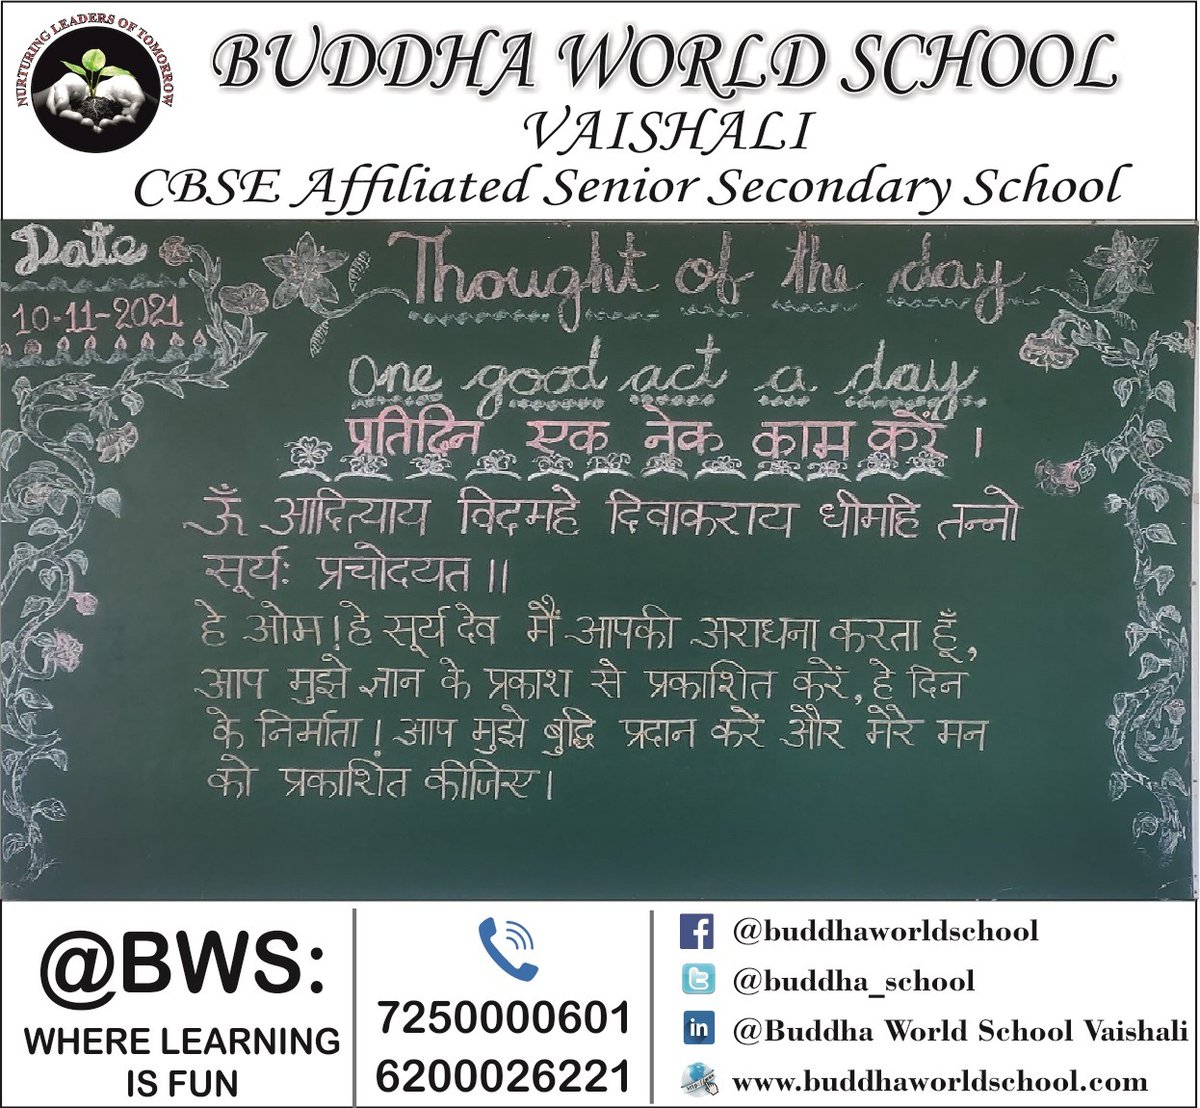 NURTURING LEADERS OF TOMORROW
BUDDHA WORLD SCHOOL
VAISHALI
CBSE Affiliated Senior Secondary School
Date
10-11-2021
Thought of the day
One good act a day
प्रतिदिन एक नेक काम करें ।
ऊँ आदित्याय विदमहे दिवाकराय धीमहि तन्नो
सूर्यः प्रचोदयत ॥
हे ओम! हे सूर्य देव मैं आपकी अराधना करता हूँ,
आप मुझे ज्ञान के प्रकाश से प्रकाशित करें, हे दिन
के निर्माता! आप मुझे बुद्धि प्रदान करें और मेरे मन
को प्रकाशित कीजिए।
@BWS:
WHERE LEARNING
IS FUN
7250000601
6200026221
@buddhaworldschool
@buddha_school
@Buddha World School Vaishali
www.buddhaworldschool.com